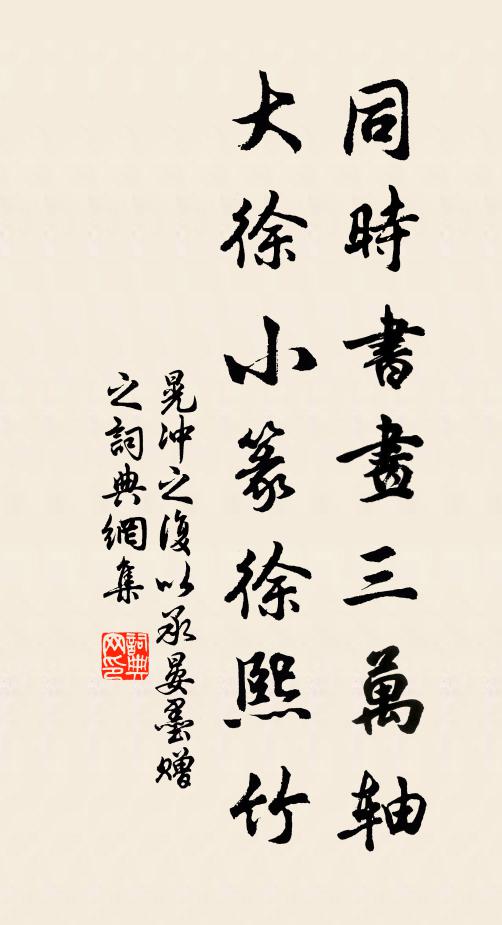 同時書畫三萬軸
大徐小篆徐熙竹
晁沖之復以承晏墨贈
之詞典網集
詞典
网印